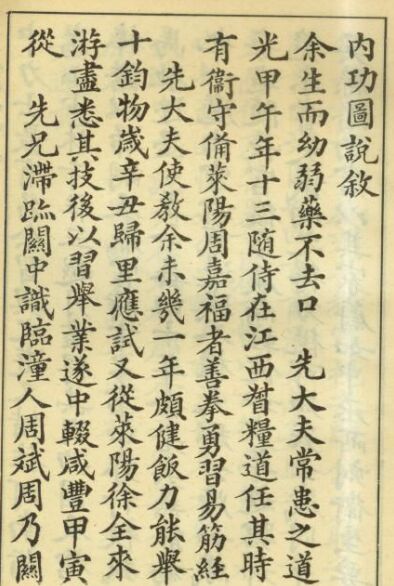 內功圖說敘
余生而幼弱藥不去口　先大夫常患之道
光甲午年十三隨侍在江西督糧道任其時
有衞守備萊陽周嘉福者善拳勇習易筋經
先大夫使教余未幾一年頗健飯力能舉
十鈞物歲辛丑歸里應試又從萊陽徐全來
游盡悉其技後以習舉業遂中輟咸豐甲寅
從　先兄滯跡關中識臨潼人周斌周乃關